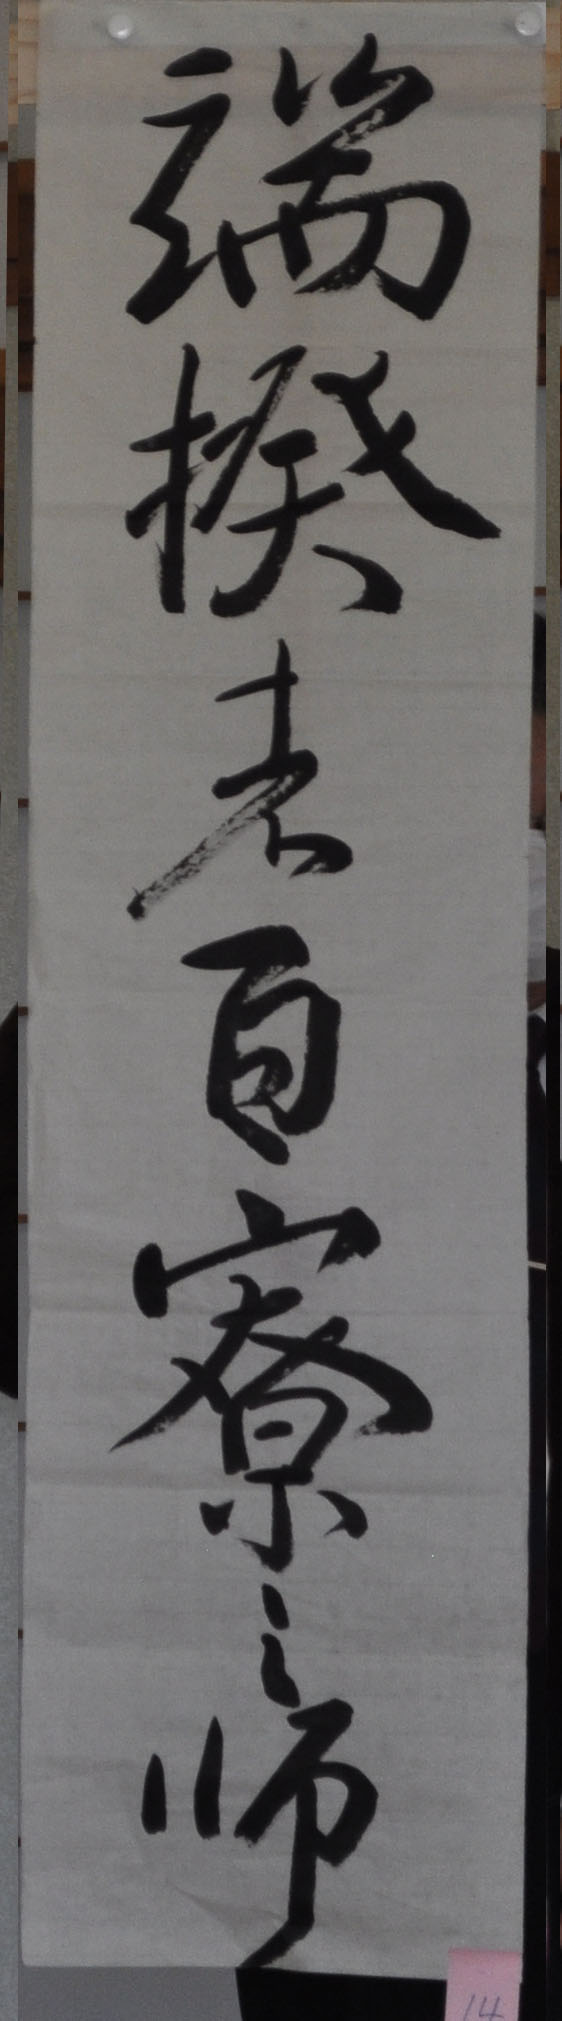 端揆者百寮之師
14